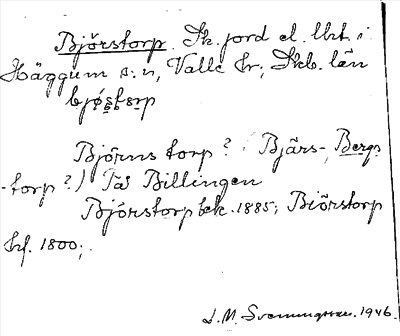 Björstorp. Sk. jord el. lht. i
Häggum s:n, Valle hr; Skb. län
bjøsterp
Björns torp? (Bjärs-, Bergs-
-torp?) På Billingen
Björstorp bek. 1885; Biörstorp
Krf. 1800;.
1946.